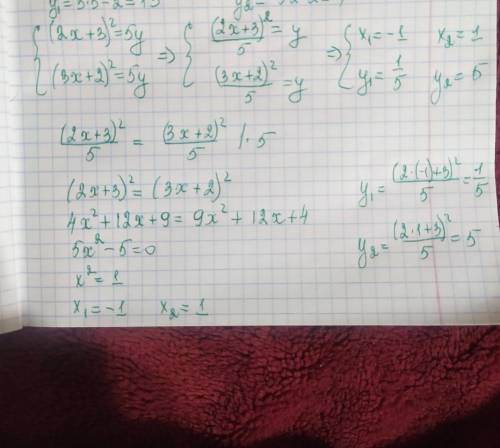 y₁=3·5-2=13
{ (2x+3)²=5y => { (2x+3)²/5 = y => { x₁=-1 x₂=1
(3x+2)²=5y (3x+2)²/5 = y y₁=1/5 y₂=5
(2x+3)²/5 = (3x+2)²/5 |·5
(2x+3)²=(3x+2)²
4x²+12x+9=9x²+12x+4
5x²-5=0
x²=1
x₁=-1 x₂=1
y₁=(2·(-1)+3)²/5=1/5
y₂=(2·1+3)²/5=5